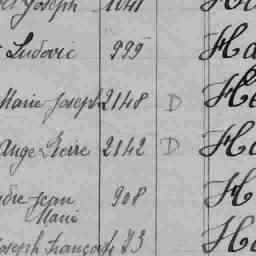 Joseph 1041
Ludovic 999 Ha
Marie Joseph 2148 D He
Ange Pierre 2142 D Ha
Jean 908 H
Marie
Joseph François 73 Ha